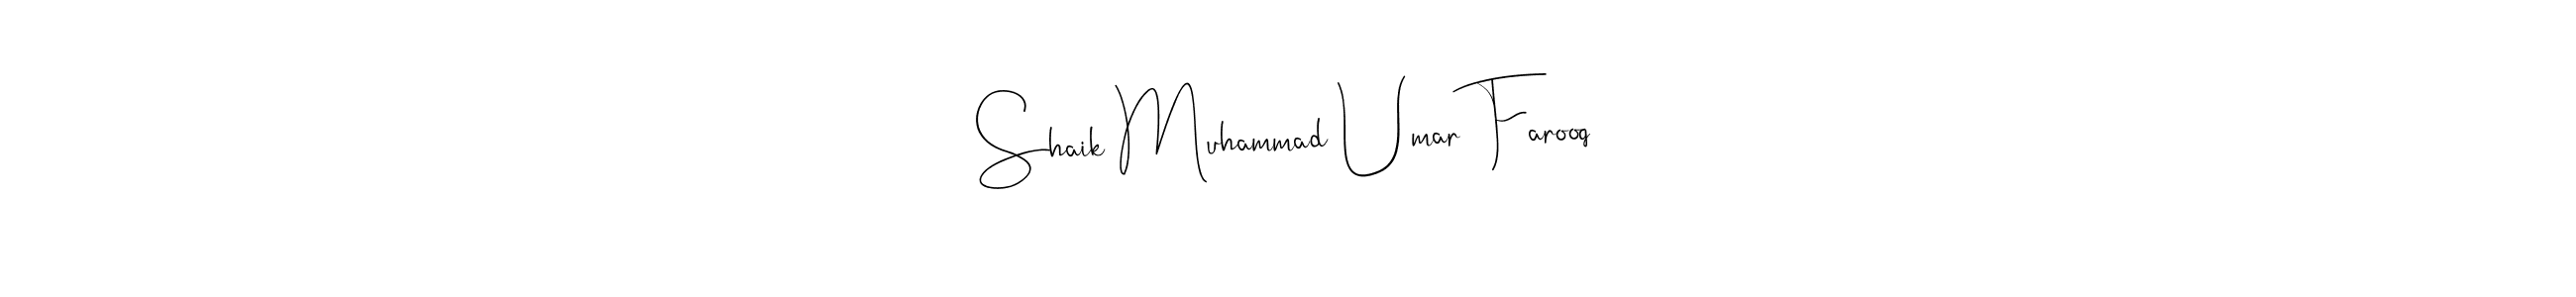 Shaik Muhammad Umar Farooq